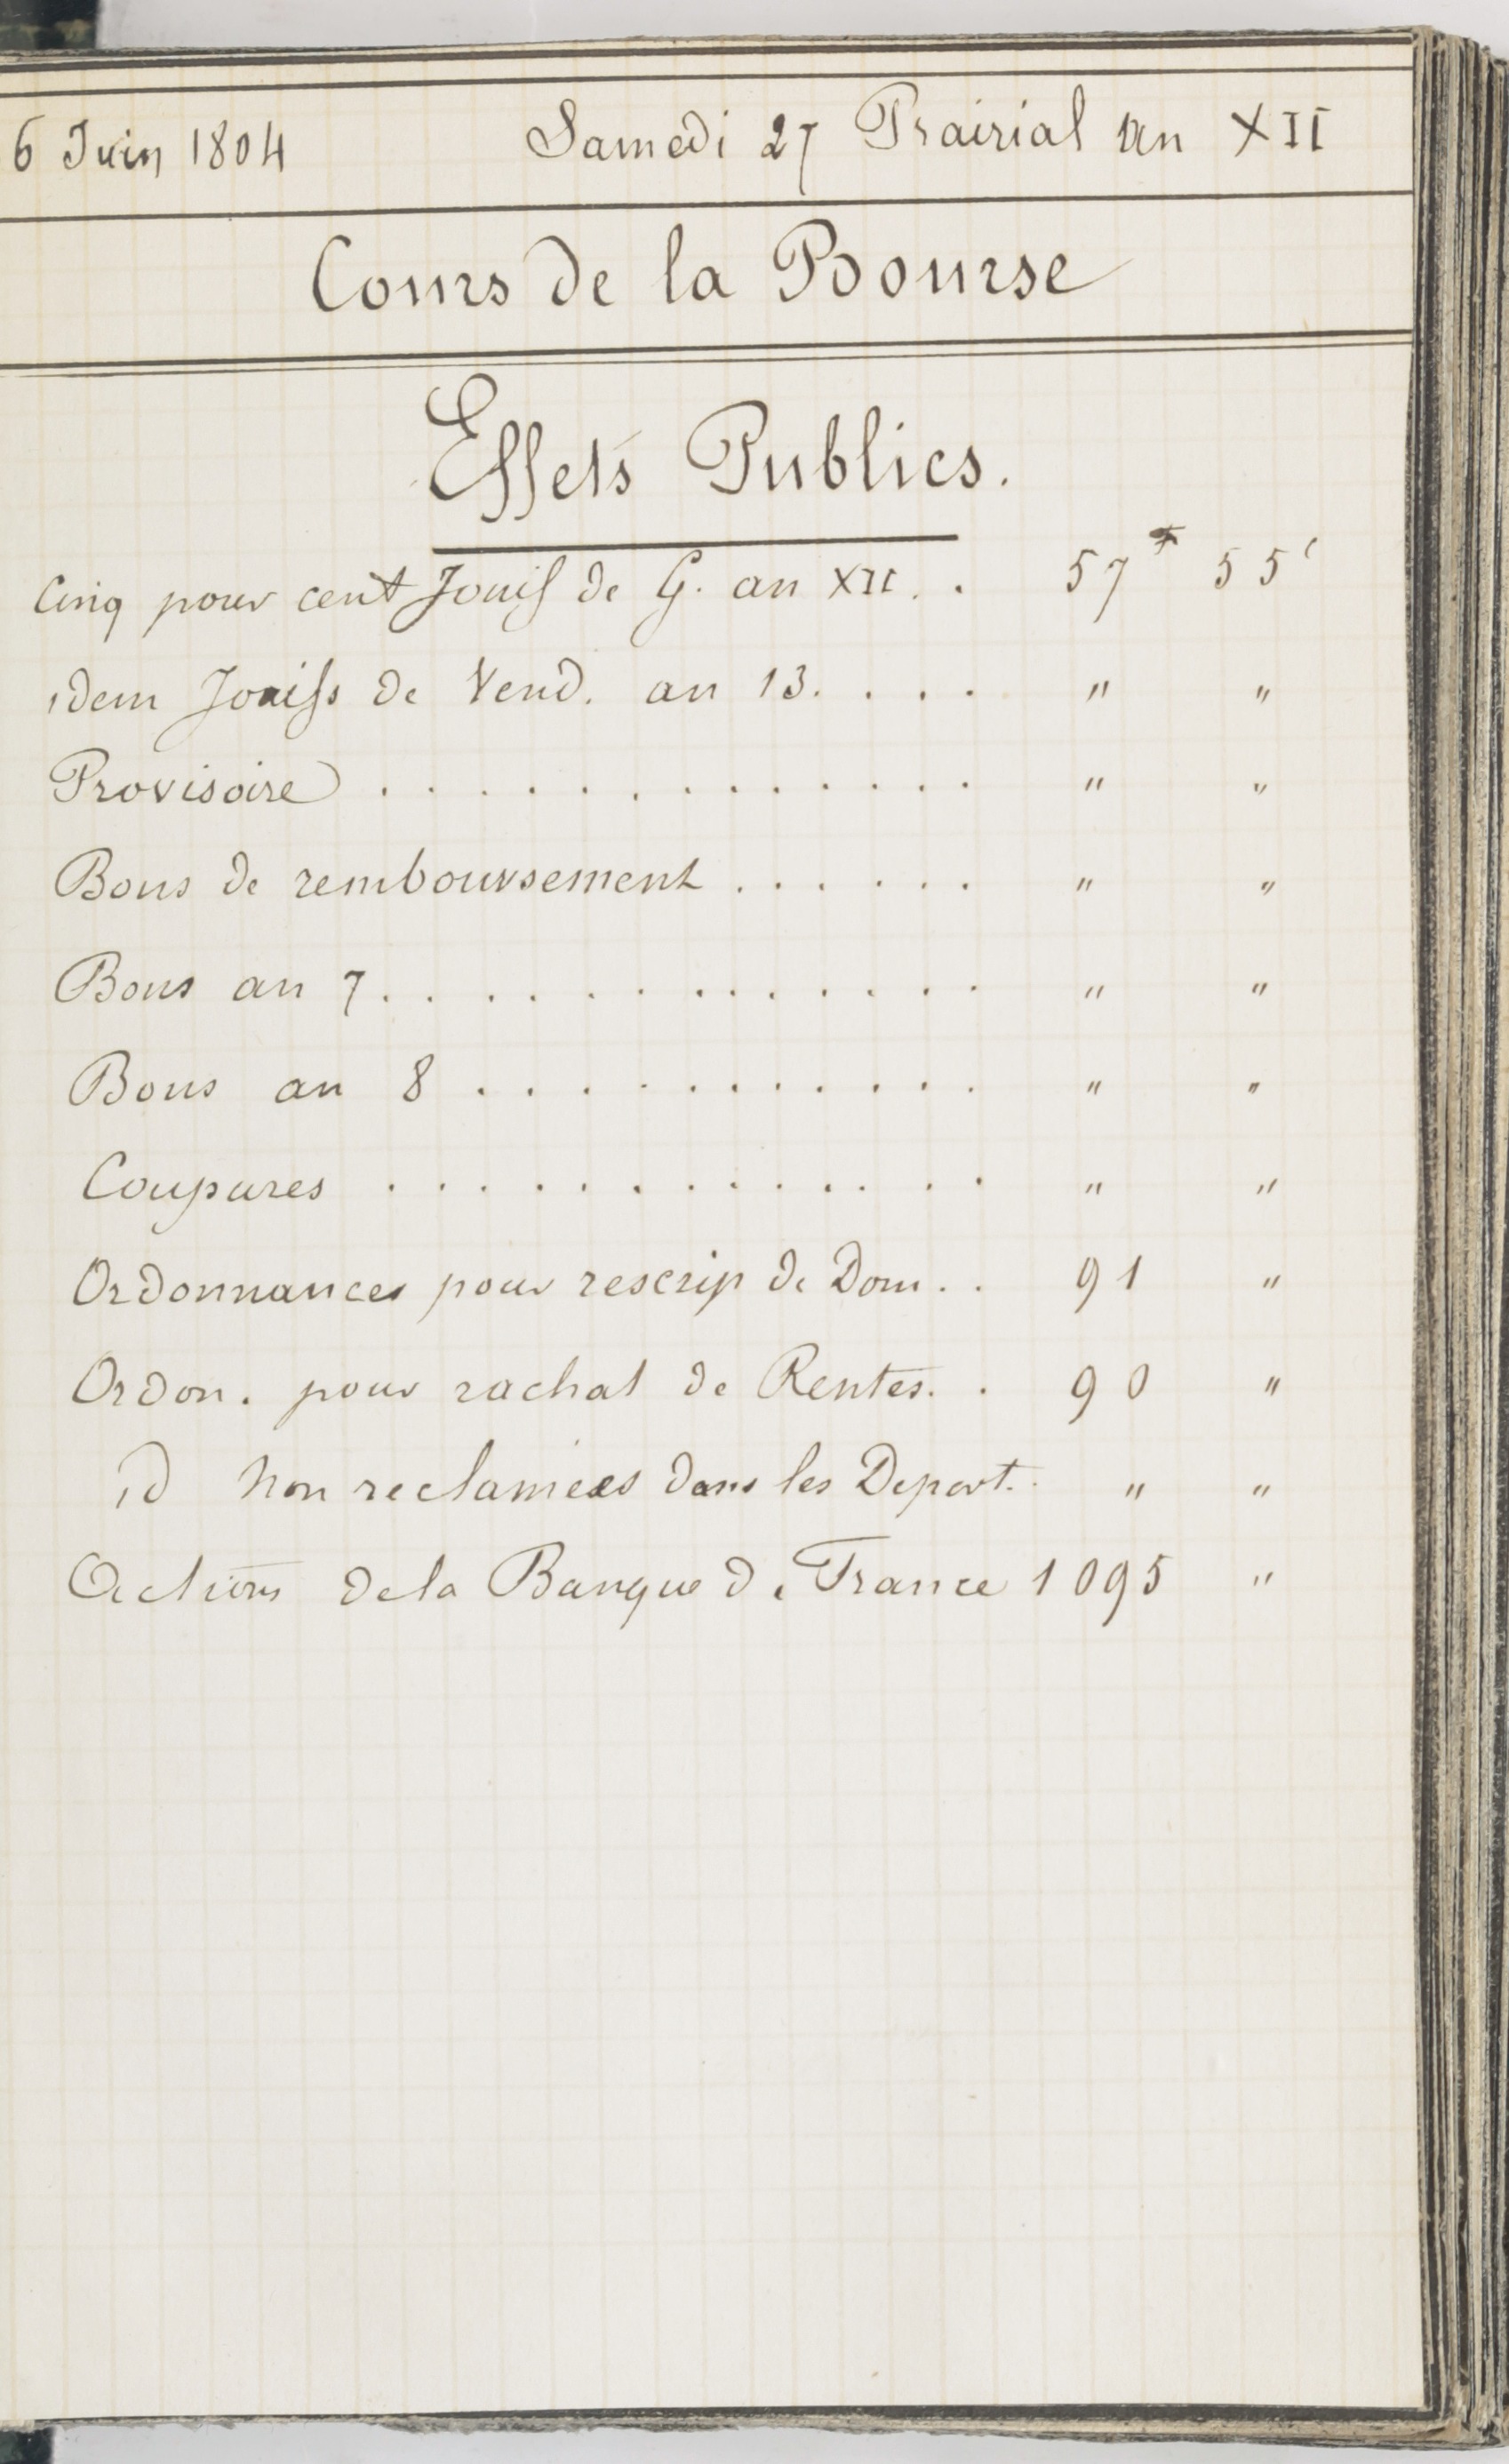 6 Juin 1804 Samedi 27 Prairial an XII
Cours de la Bourse
Effets Publics.
Cinq pour cent Jouiss de G. an XII. . 57f 55c
idem Jouiss de Vend. an 13. . . . " "
Provisoire . . . . . . . . . . . . . " "
Bons de remboursement . . . . . . " "
Bons an 7. . . . . . . . . . . . . " "
Bons an 8 . . . . . . . . . . . " "
Coupures . . . . . . . . . . . . . " "
Ordonnances pour rescrip de Dom. . 91 "
Ordon. pour rachat de Rentes. . 90 "
id Non reclamées dans les Depart. . " "
Actions de la Banque de France 1095 "